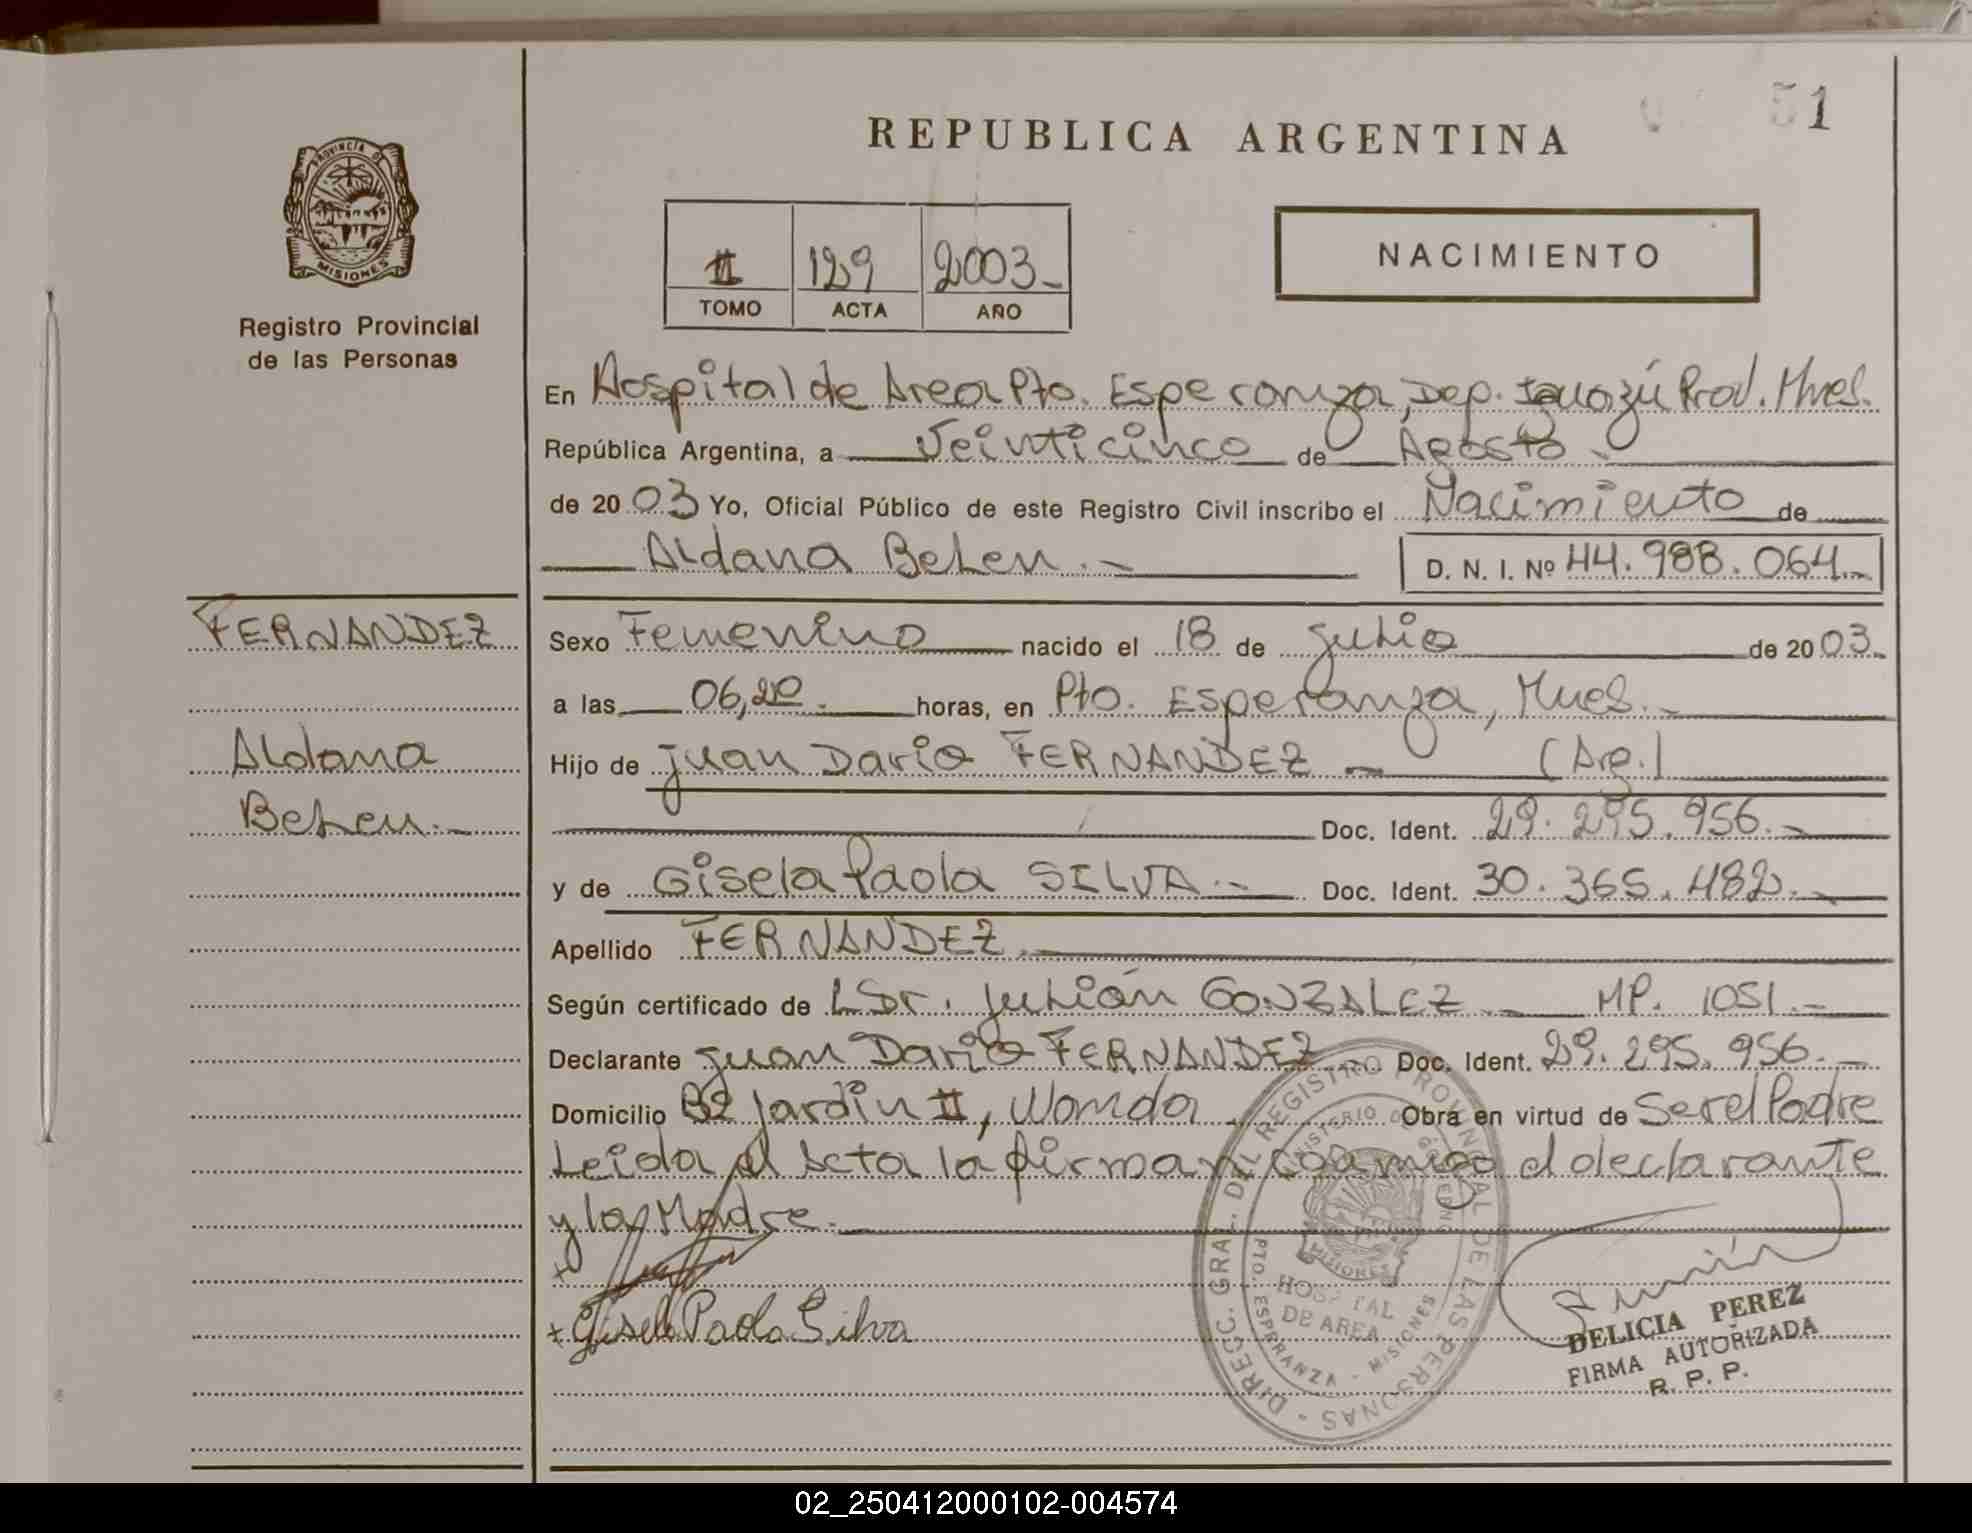 51
REPUBLICA ARGENTINA
PROVINCIA DE
MISIONES
Registro Provincial
de las Personas
II 129 2003-
TOMO ACTA AÑO
NACIMIENTO
En Hospital de Area Pto. Esperanza, Dep. Iguazú Prov. Mnes.
República Argentina, a Veinticinco de Agosto.-
de 2003 Yo, Oficial Público de este Registro Civil inscribo el Nacimiento de
Aldana Belen.-
D. N. I. Nº 44.988.064.-
FERNANDEZ
Aldana
Belen.-
Sexo Femenino nacido el 18 de julio de 2003.
a las 06,20. horas, en Pto. Esperanza, Mnes.-
Hijo de Juan Dario FERNANDEZ - (Arg.)
Doc. Ident. 29.295.956.-
y de Gisela Paola SILVA.- Doc. Ident. 30.365.482.-
Apellido FERNANDEZ.-
Según certificado de Dr. Julián GONZALEZ.- MP. 1051.-
Declarante Juan Dario FERNANDEZ Doc. Ident. 29.295.956.-
Domicilio Bº Jardin II, Wanda. Obra en virtud de Ser el Padre
Leida el Acta la firman conmigo el declarante
y la Madre.-
+
+ Gisela Paola Silva
DIRECC. GRAL. DEL REGISTRO PROVINCIAL DE LAS PERSONAS -
MINISTERIO DE GOBIERNO
MISIONES
HOSPITAL
DE AREA
PTO. ESPERANZA - MISIONES
DELICIA PEREZ
FIRMA AUTORIZADA
R. P. P.
02_250412000102-004574